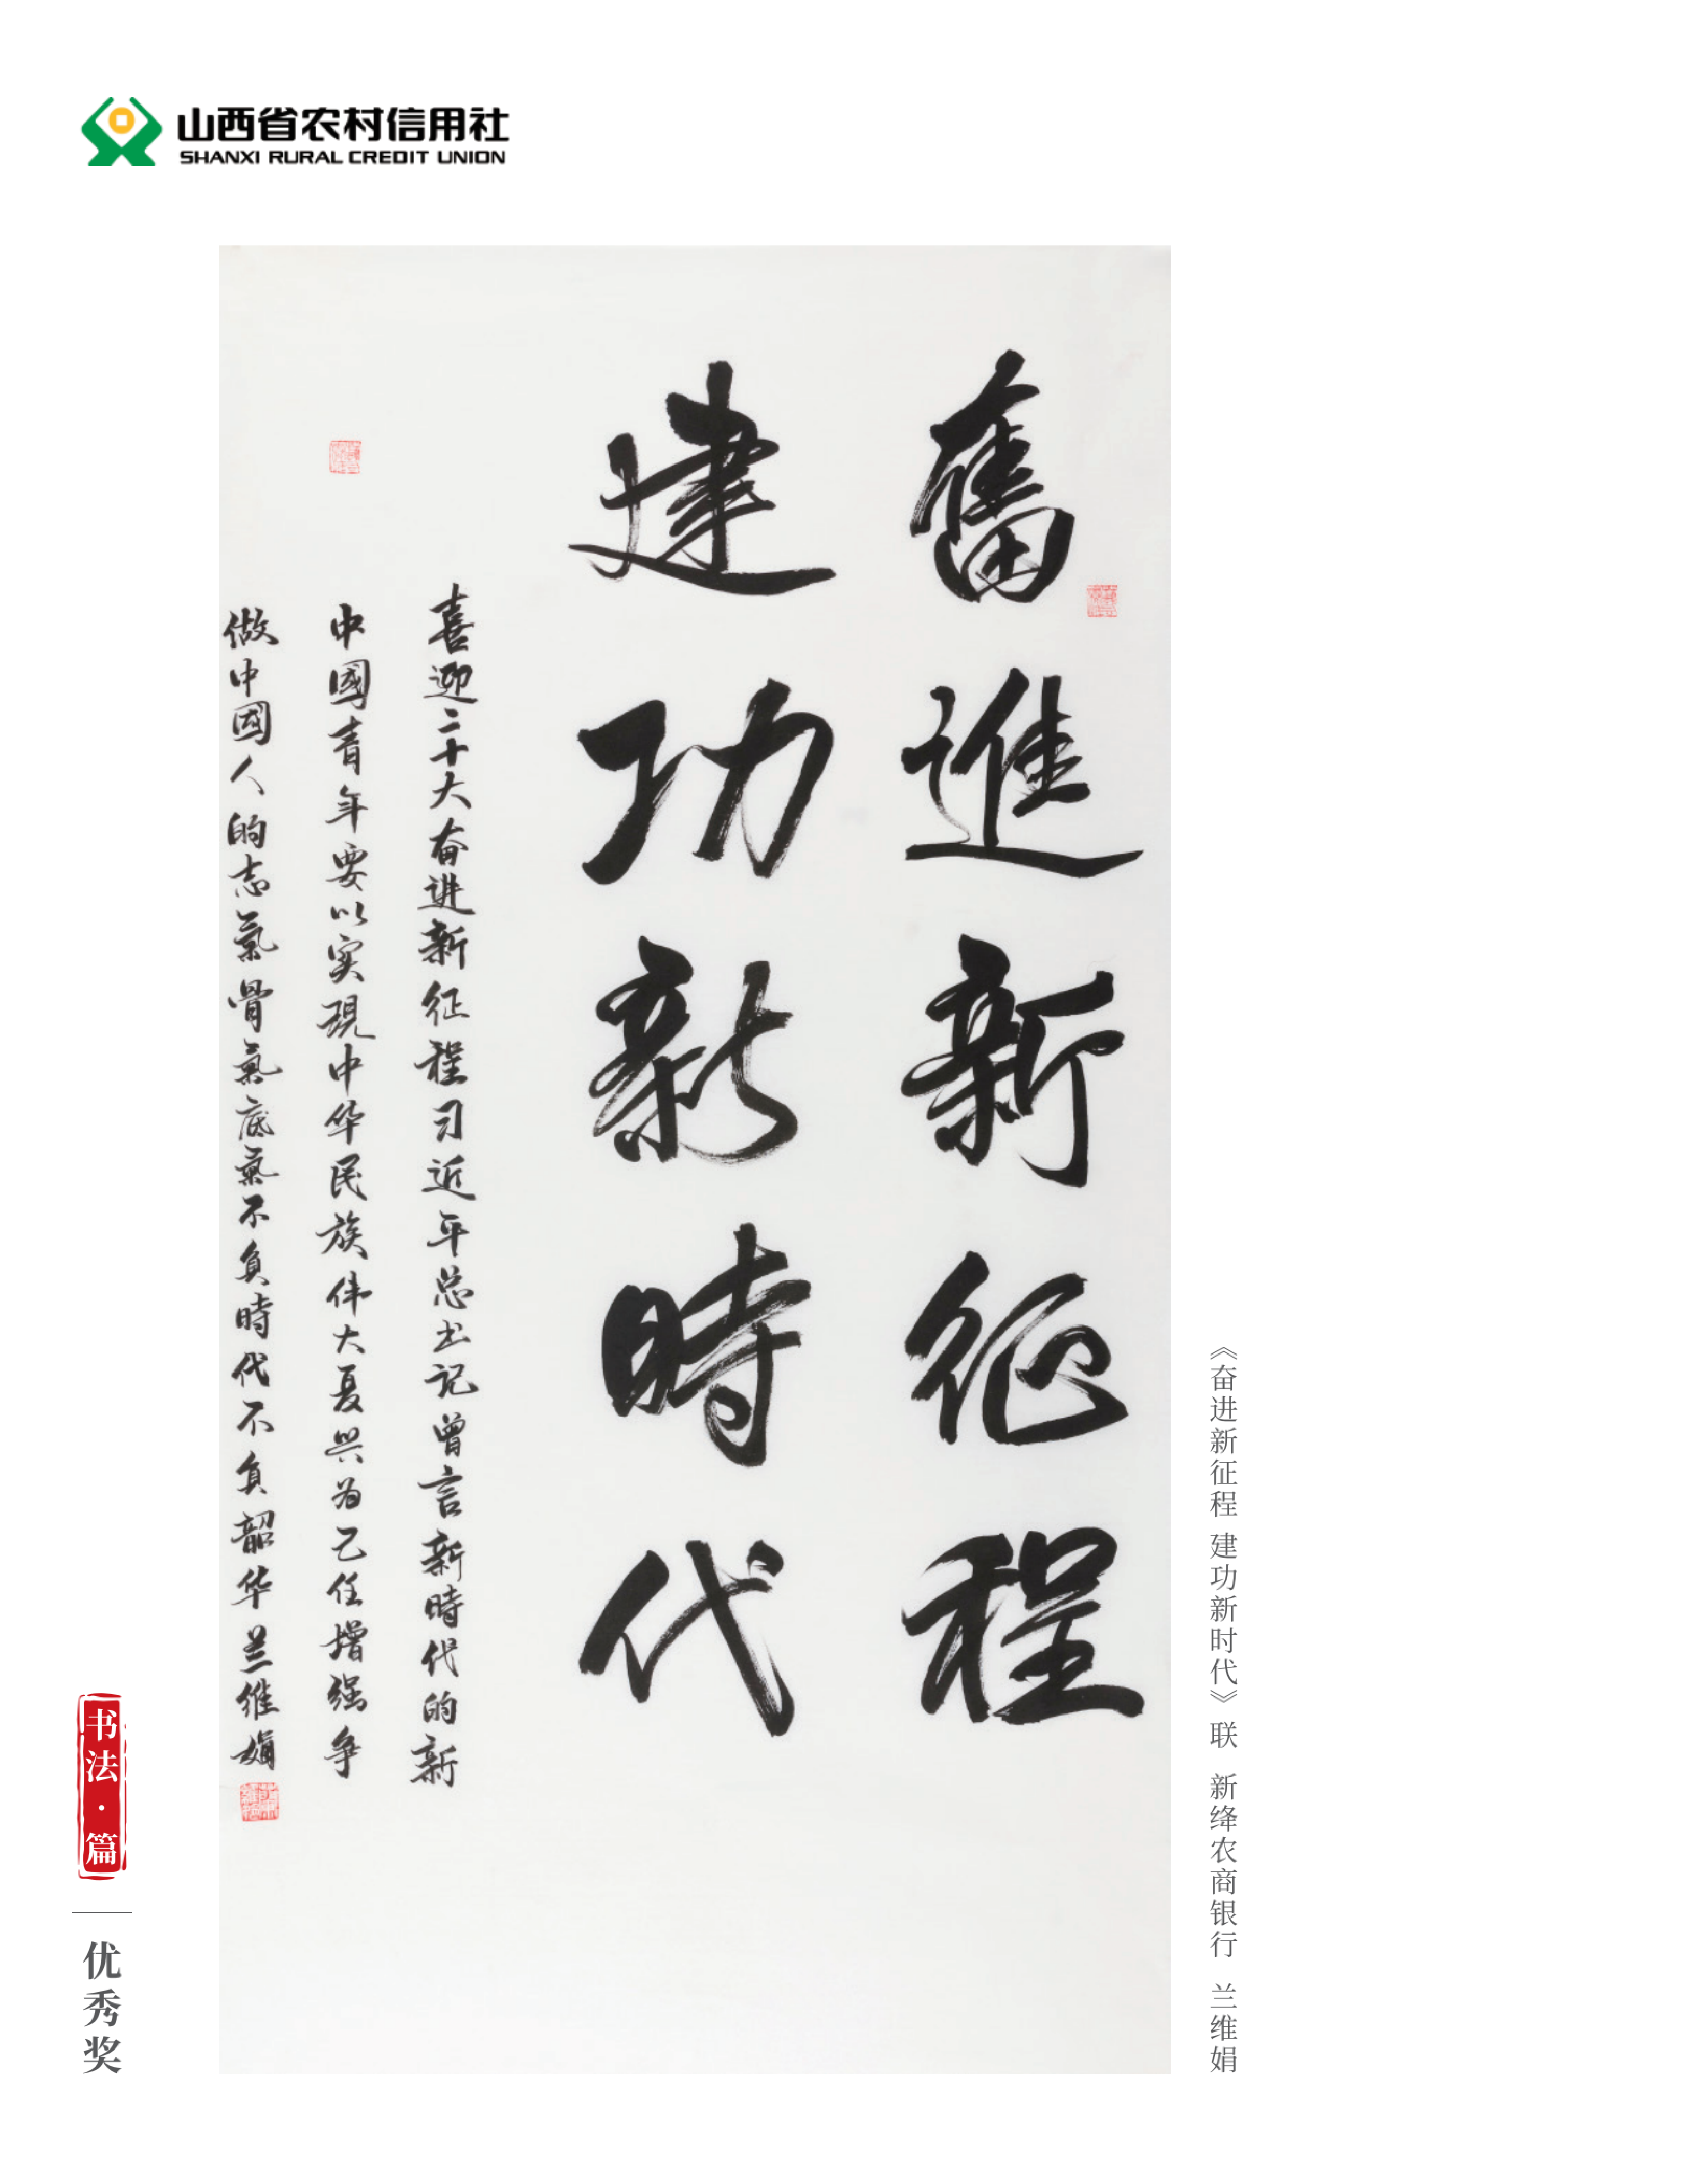 山西省农村信用社
SHANXI RURAL CREDIT UNION
奮進新征程
建功新時代
喜迎二十大奋进新征程习近平总书记曾言新時代的新
中國青年要以实現中华民族伟大复兴为己任增强争
做中國人的志氣骨氣底氣不負時代不負韶华兰维娟
《奋进新征程 建功新时代》联 新绛农商银行 兰维娟
书法·篇
优秀奖